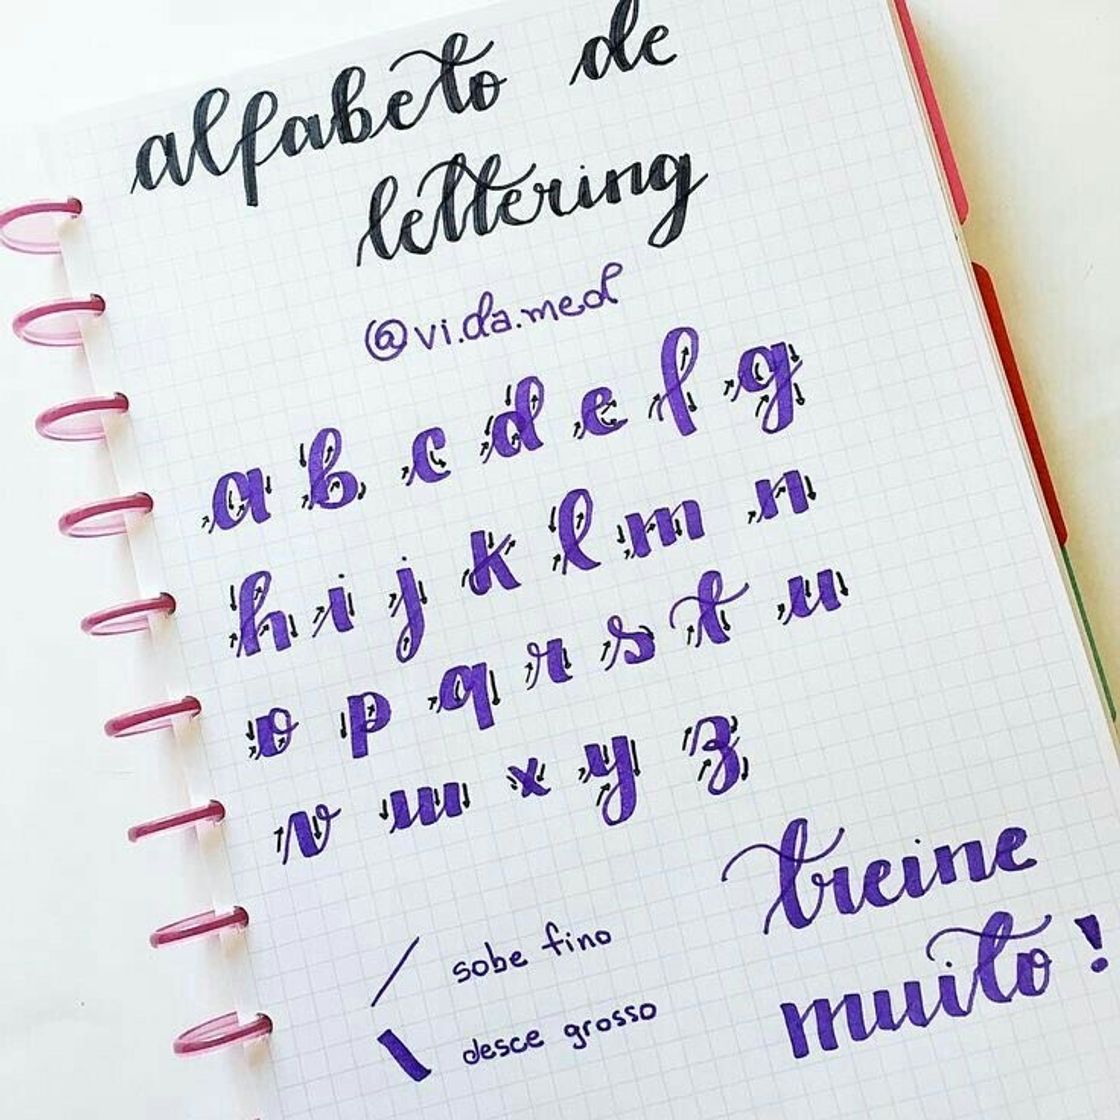 alfabeto de
lettering
@vi.da.med
a b c d e f g
h i j k l m n
o p q r s t u
v w x y z
sobe fino
desce grosso
treine
muito!